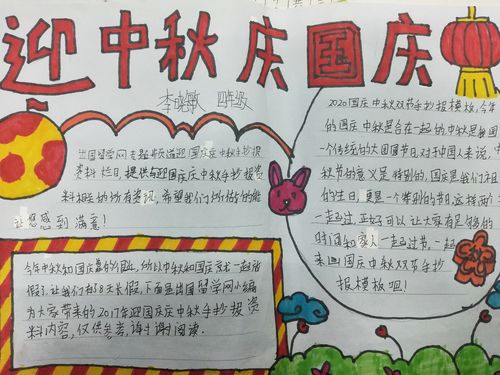 迎中秋庆国庆
李晓敏 四年级
出国留学网专题频道迎国庆庆中秋手抄报
资料栏目,提供与迎国庆庆中秋手抄报资
料相关的所有资讯,希望我们所做的能
让您感到满意!
今年中秋和国庆靠的近,所以中秋和国庆节一起放
假了,让我们有了8天长假,下面是出国留学网小编
为大家带来的2017年迎国庆庆中秋手抄报资
料内容,仅供参考,谢谢阅读.
2020国庆中秋双节手抄报模板,今年
的国庆中秋是合在一起的,中秋是我国
一个传统的大团圆节日,对于中国人来说,中
秋节的意义是特别的,国庆是我们祖
的生日,更是一个特别的节日,这样两
一起过,正好可以让大家有足够的
时间和家人一起过节,一起
来画国庆中秋双节手抄
报模板吧!